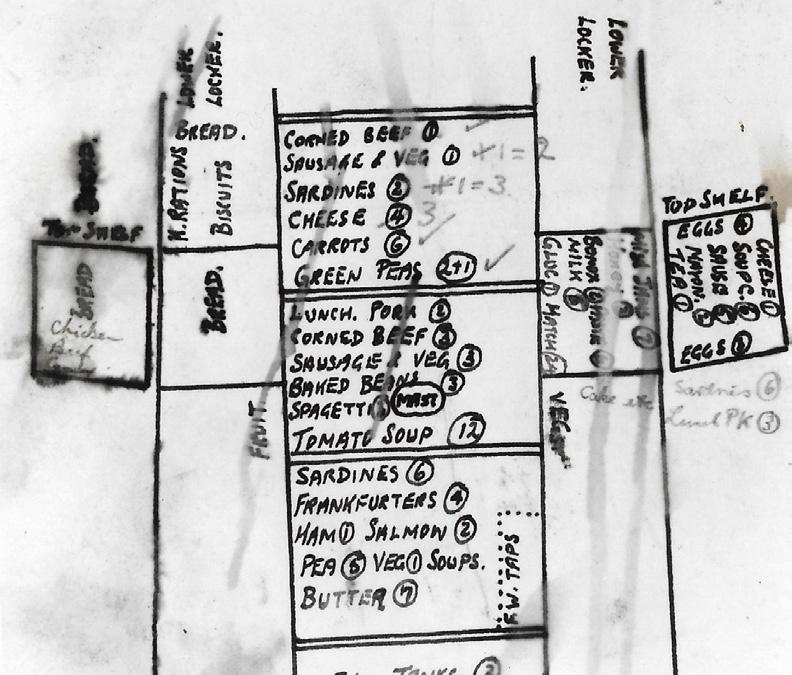 LOWER
LOCKER.
BREAD.
K. RATIONS
BISCUITS
BREAD.
TOP SHELF
BREAD
Chicken
Beef
BREAD.
FRUIT.
CORNED BEEF 1
SAUSAGE & VEG 1 +1=2
SARDINES 2 +1=3
CHEESE 4 3
CARROTS 6 ✓
GREEN PEAS 2+1 ✓
LUNCH. PORK 2
CORNED BEEF
SAUSAGE & VEG 3
BAKED BEANS 3
SPAGETTI MAST
TOMATO SOUP 12
SARDINES 6
FRANKFURTERS 4
HAM 1 SALMON 2
PEA 6 VEG 1 SOUPS.
BUTTER 7
F.W. TAPS
TANKS
LOWER
LOCKER.
Honey
MILK
GLUC 1 MATCH
Cake etc
VEGS
TOP SHELF.
EGGS
CHEESE 1
SOUP C.
SAUSG
MAYON.
TEA 1
EGGS
Sardines 6
Lunch PK 3